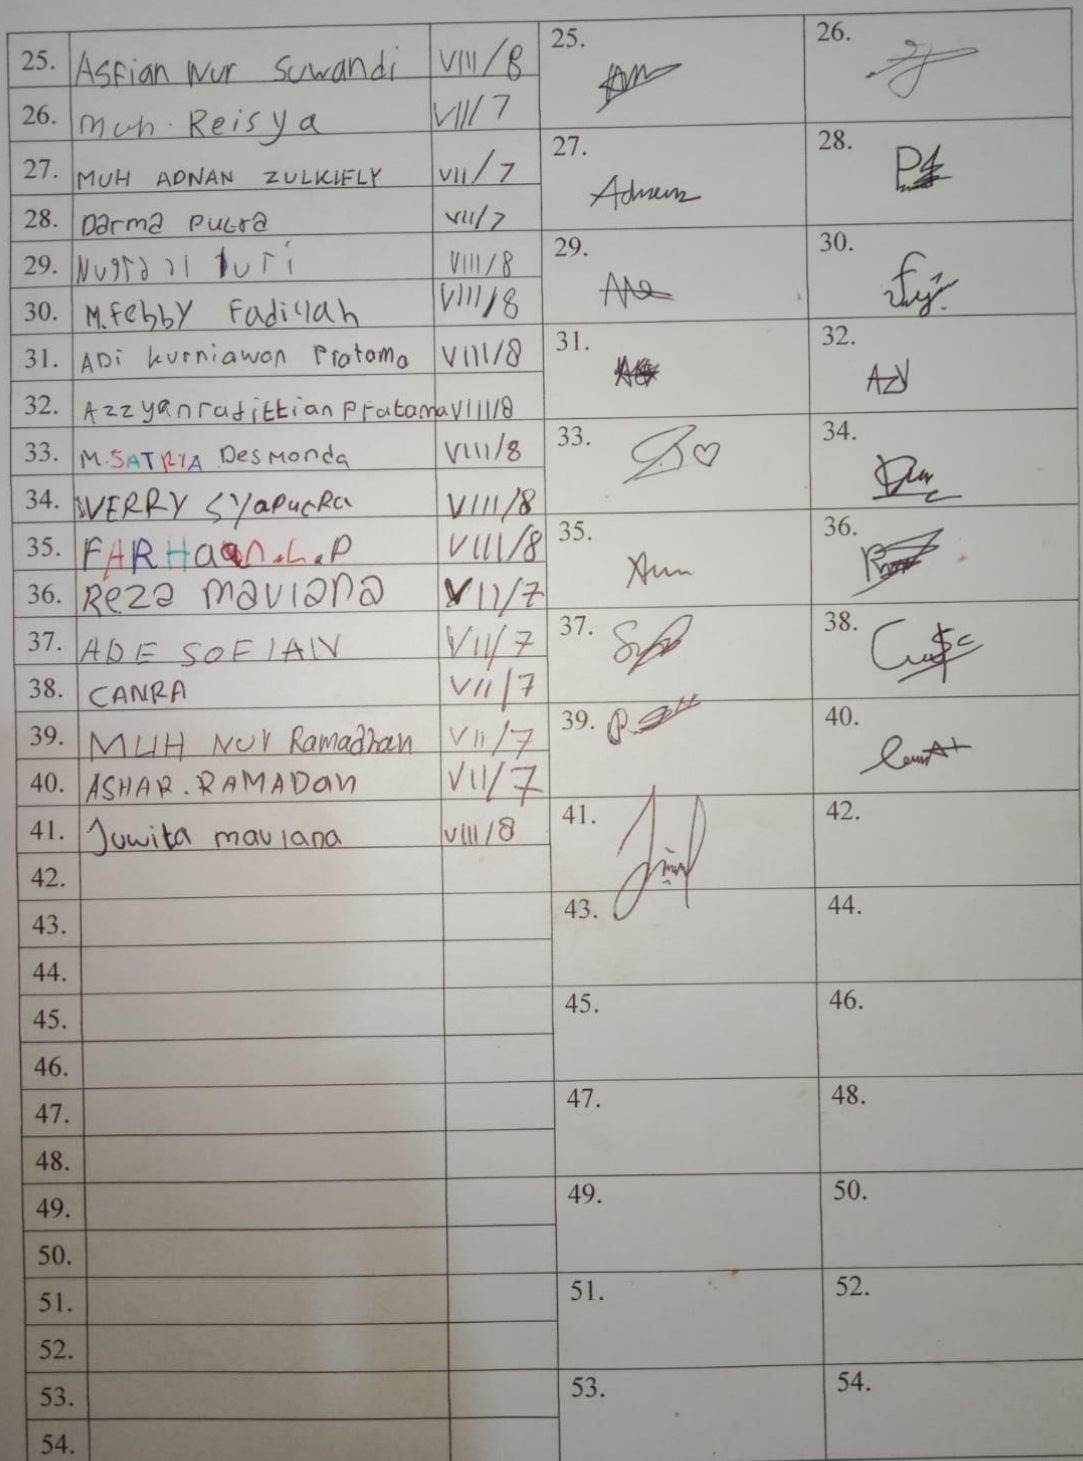 25. Asfian Nur Suwandi VIII/8 25. 26.
26. Muh. Reisya VII/7
27. MUH ADNAN ZULKIFLY VII/7 27. Adnan 28.
28. Darma Putra VII/7
29. VIII/8 29. 30.
30. M.Febby Fadillah VIII/8
31. ADi kurniawan Pratama VIII/8 31. 32. AzY
32. Azzyanradittian Pratama VIII/8
33. M.SATRIA Desmonda VIII/8 33. 34.
34. VERRY SyaPutRa VIII/8
35. FARHaan.L.P VIII/8 35. 36.
36. Reza maulana VII/7
37. ADE SOFIAN VII/7 37. 38.
38. CANRA VII/7
39. MUH NUr Ramadhan VII/7 39. 40.
40. ASHAR.RAMADan VII/7
41. Juwita maulana VIII/8 41. 42.
42.
43. 43. 44.
44.
45. 45. 46.
46.
47. 47. 48.
48.
49. 49. 50.
50.
51. 51. 52.
52.
53. 53. 54.
54.